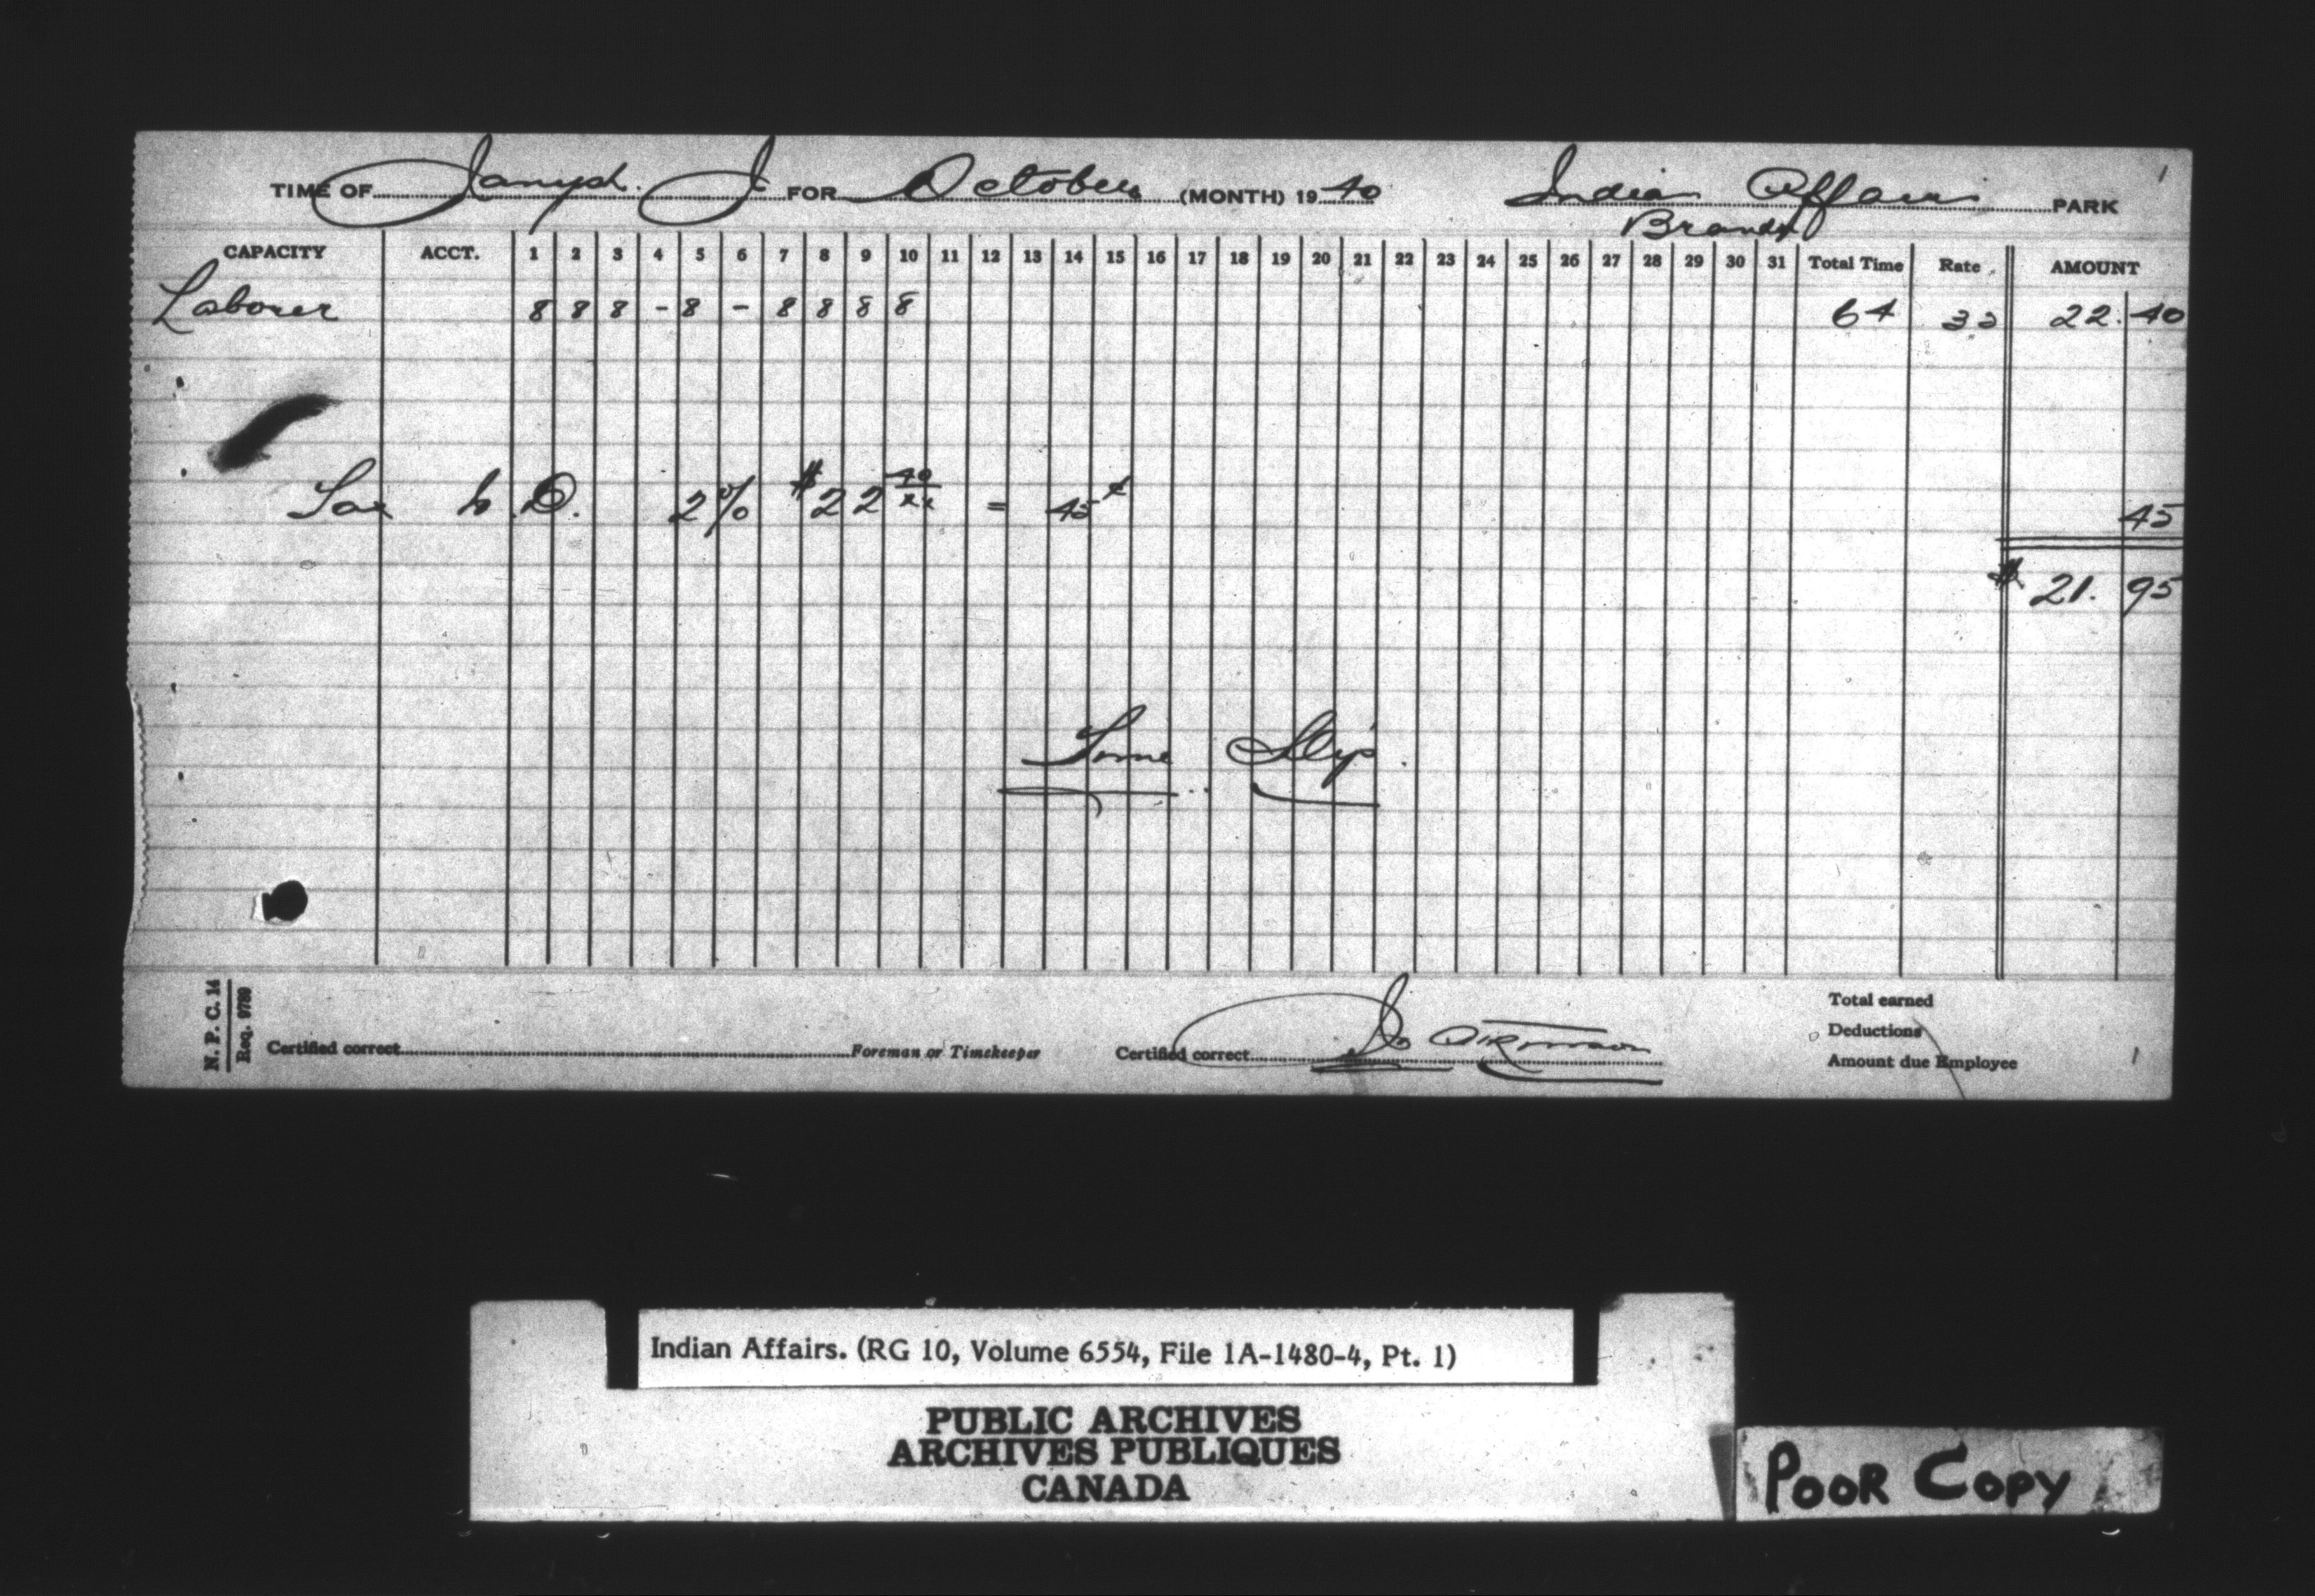 TIME OF J FOR October (MONTH) 19 40 Indian Affairs PARK
Branch
CAPACITY ACCT. 1 2 3 4 5 6 7 8 9 10 11 12 13 14 15 16 17 18 19 20 21 22 23 24 25 26 27 28 29 30 31 Total Time Rate AMOUNT
Laborer 8 8 8 - 8 - 8 8 8 8 64 35 22.40
Tax N.D. 2% $22 40/xx = 45¢ 45
$21.95
Time Slip.
N. P. C. 14
Req. 9789
Certified correct Foreman or Timekeeper Certified correct
Total earned
Deductions
Amount due Employee
Indian Affairs. (RG 10, Volume 6554, File 1A-1480-4, Pt. 1)
PUBLIC ARCHIVES
ARCHIVES PUBLIQUES
CANADA
POOR COPY